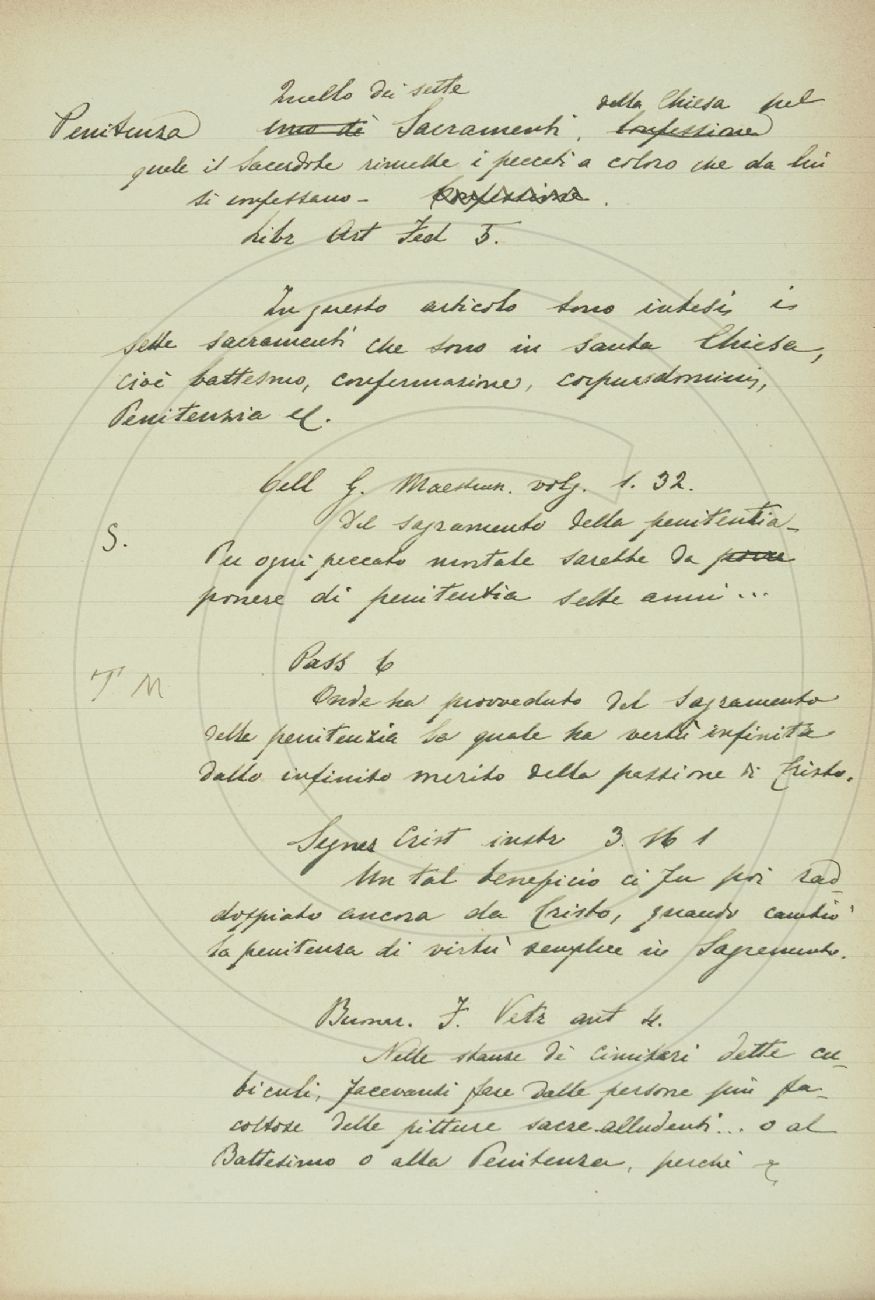 Quello dei sette
della Chiesa pel
Penitenza uno di Sacramenti, Confessione
quale il Sacerdote rimette i peccati a coloro che da lui
si confessano - Confessione.
Libr Art Fed 5.
In questo articolo sono intesi i
sette sacramenti che sono in santa Chiesa,
cioè battesmo, confermazione, corpusdomini,
Penitenzia ec.
Cell G. Maestruz. volg. 1. 32.
Del sagramento della penitentia -
S.
Per ogni peccato mortale sarebbe da porre
ponere di penitentia sette anni ...
Pass 6
T M
Onde ha provveduto del sagramento
della penitenzia la quale ha vertù infinita
dallo infinito merito della passione di Cristo.
Segner Crist instr 3. 16 1
Un tal beneficio ci fu poi rad-
doppiato ancora da Cristo, quando cambiò
la penitenza di virtù semplice in Sagramento.
Buonar. F. Vetr ant 4.
Nelle stanze di cimiteri dette cu-
biculi, facevansi fare dalle persone più fa-
coltose delle pitture sacre alludenti... o al
Battesimo o alla Penitenza, perchè